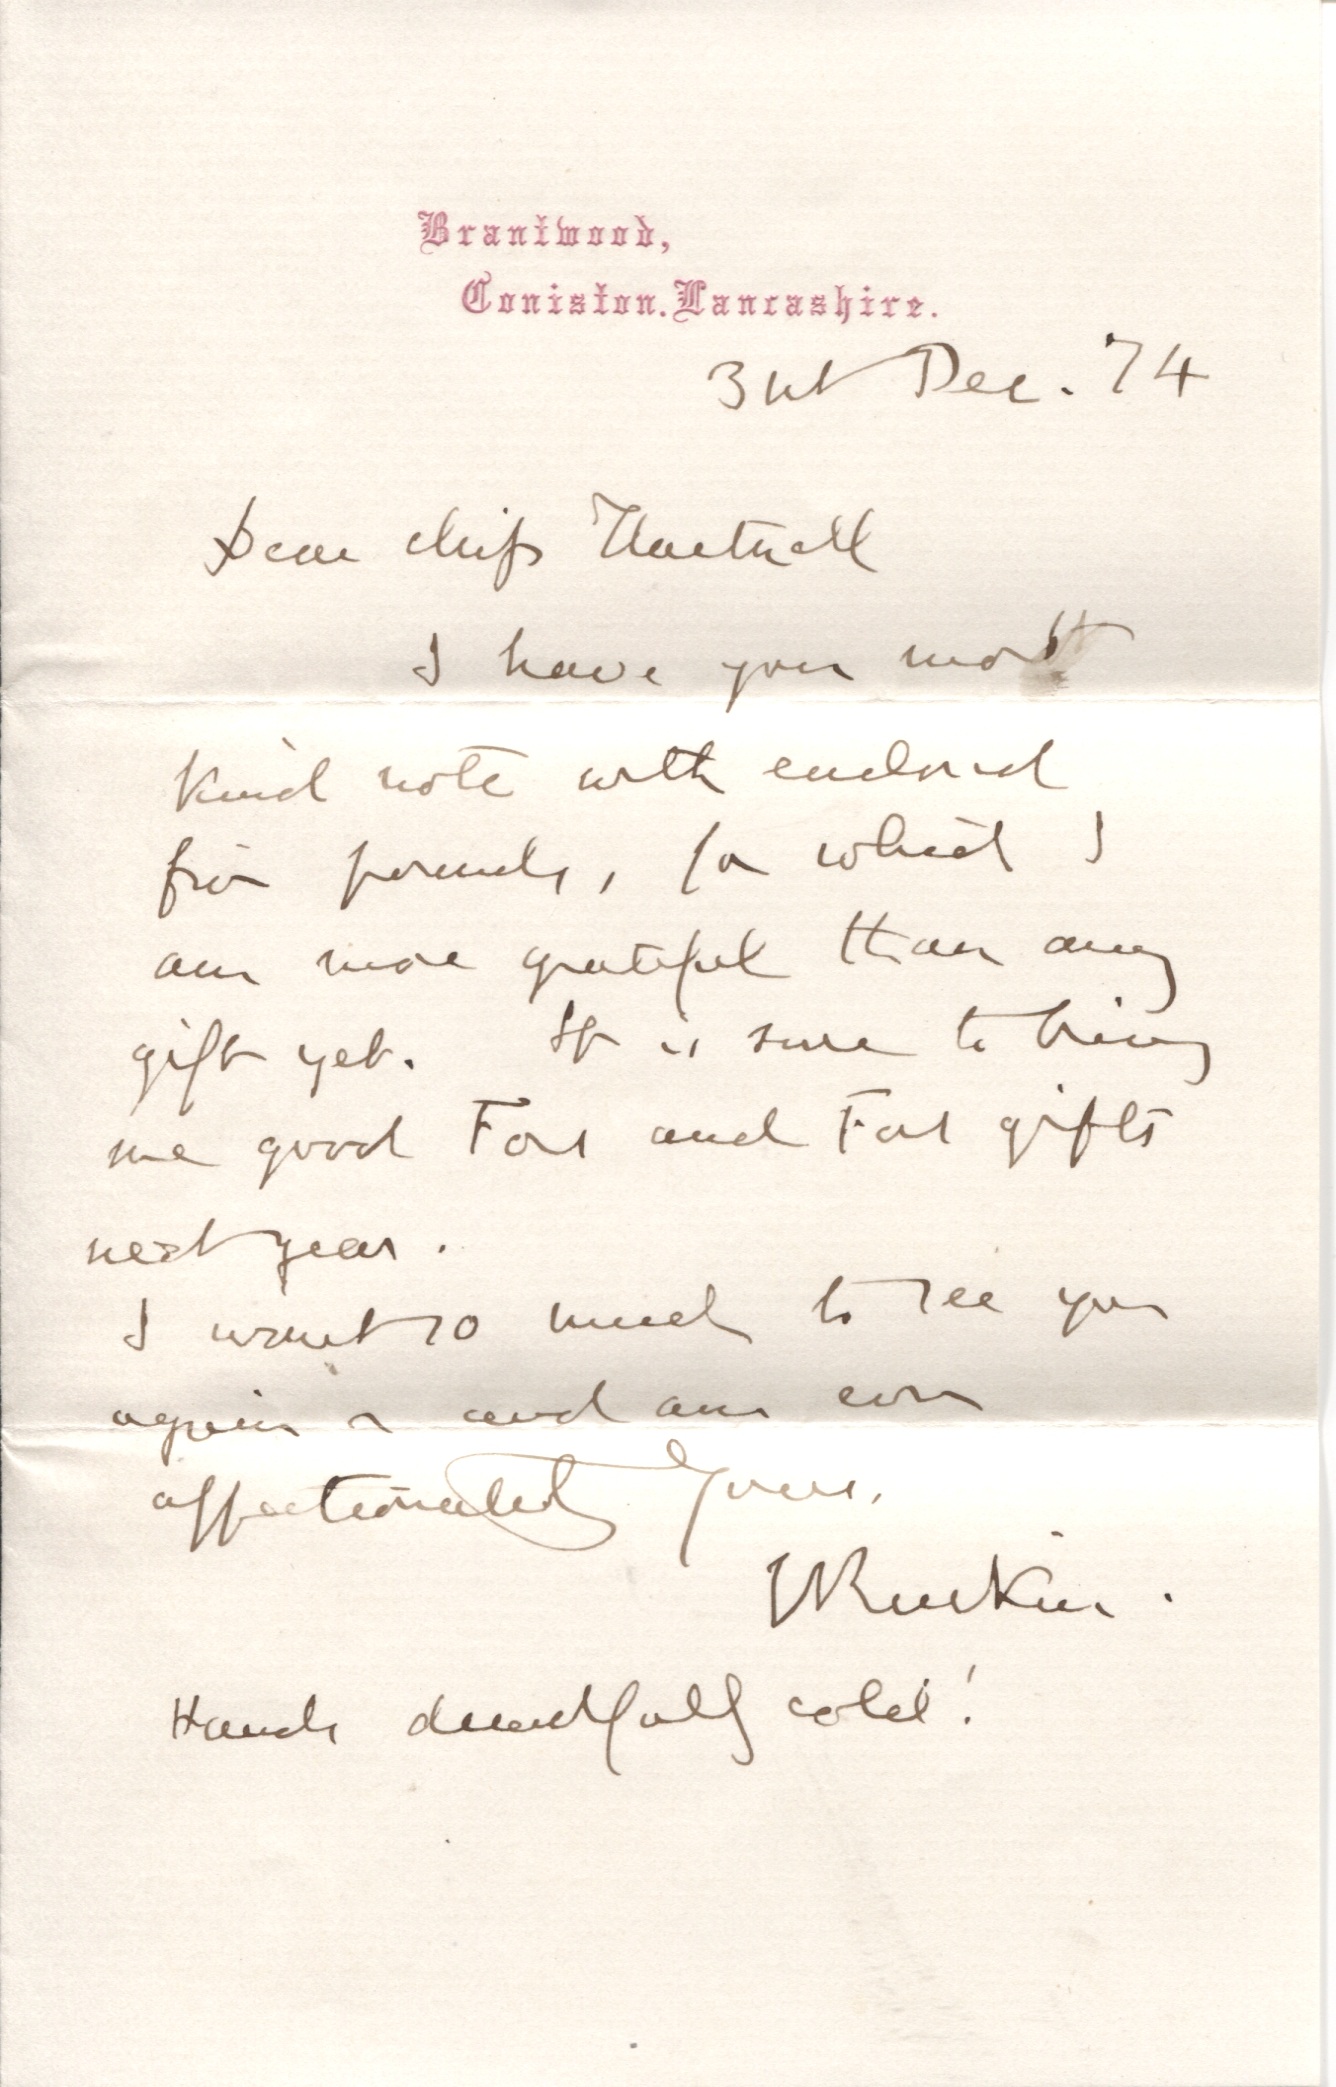 Brantwood,
Coniston. Lancashire.
31st Dec. 74
Dear Miss
I have your most
kind note with enclosed
five pounds, for which I
am more grateful than any
gift yet. It is sure to bring
me good Fors and Fors gifts
next year.
I want so much to see you
again - and am ever
affectionately Yours,
JRuskin.
Hands dreadfully cold!